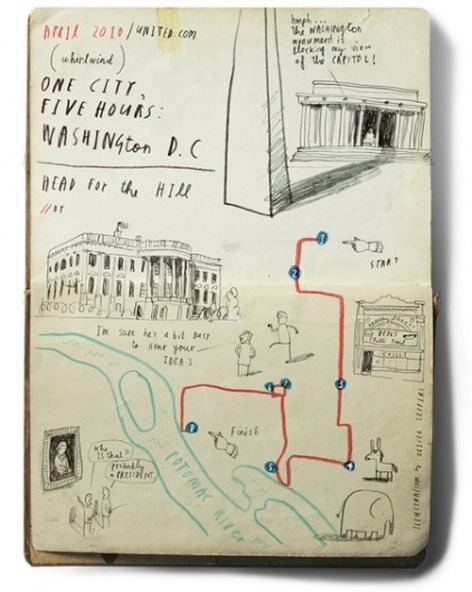 APRIL 2010 / UNITED.COM
(whirlwind)
ONE CITY,
FIVE HOURS:
WASHINGton D.C
HEAD FOR the HILL
//BY
hmph...
the WASHINGTON
monument is
blocking my view
of the CAPITOL!
1
START
2
CHILI
I'm sure he's a bit busy
to hear your
IDEA'S
3
6 7
8
Finish
5
4
POTOMAC RIVER
who
IS that?
probably
a PRESIDENT
ILLUSTRATION by OLIVER JEFFERS